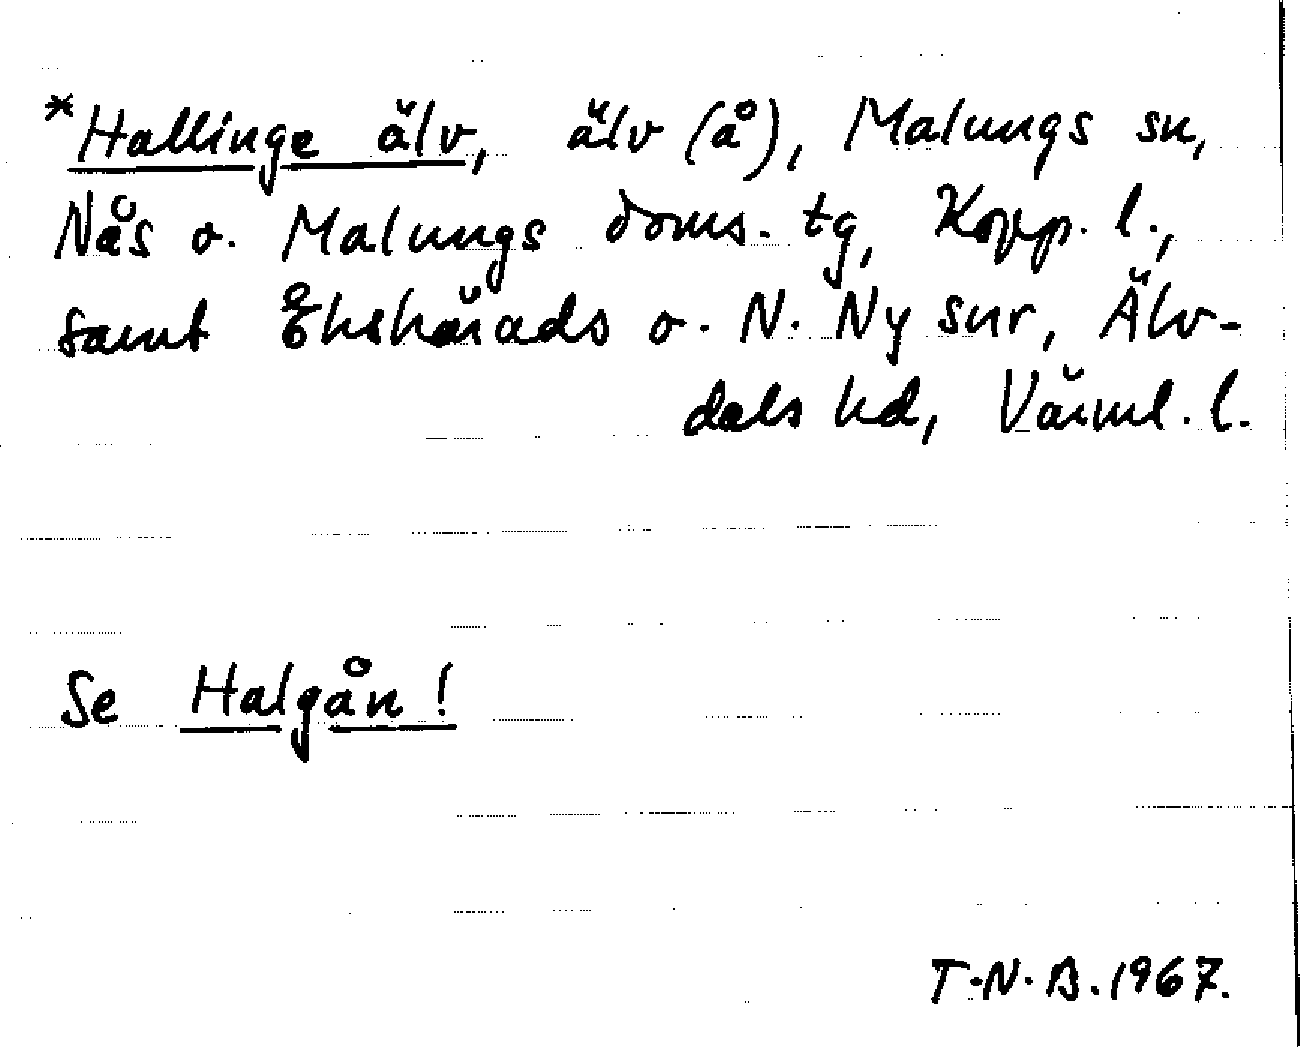 *Hallinge älv, älv (å), Malungs sn,
Nås o. Malungs doms. tg, Kopp. l.,
samt Ekshärads o. N. Ny snr, Älv-
dals hd, Värml. l.
Se Halgån!
T.N.B. 1967.